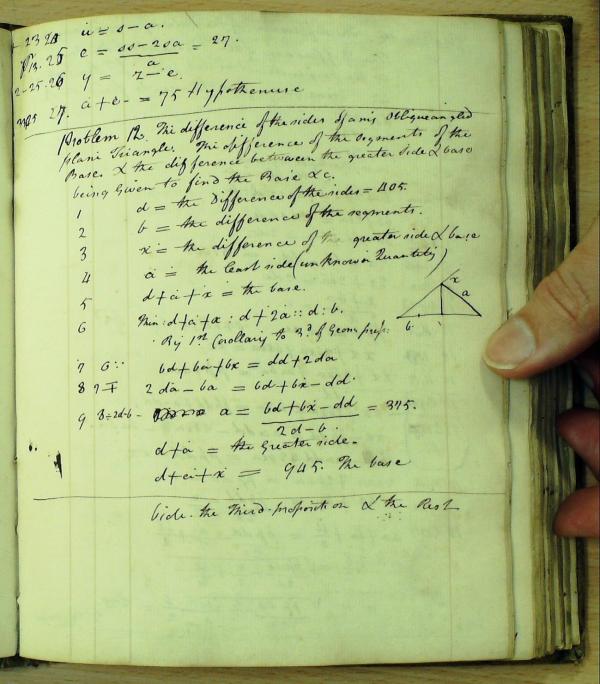 23 u = s - a.
25 e = ss-2sa/a = 27.
2-25-26 y = z - e.
27. a+e = 75 Hypothenuse
Problem 12. The difference of the sides of any Obliqueangled
plani Triangle. The difference of the Segments of the
Base & the difference between the greater Side & base
being Given to find the Base &c.
1 d = the Difference of the sides = 405.
2 b = the difference of the segments.
3 x = the difference of the greater side & base
4 a = the least side (unknown Quantity)
5 d+a+x = the base.
6 Then: d+a+x : d+2a :: d : b.
By 1st Corollary to 3d of Geom props.
x
a
b
7 6∵ bd+ba+bx = dd+2da
8 7∓ 2da-ba = bd+bx-dd.
9 8÷2d-b- a = bd+bx-dd/2d-b = 375.
d+a = the Greater side.
d+a+x = 945. The base
Vide. the Third proposition & the Rest